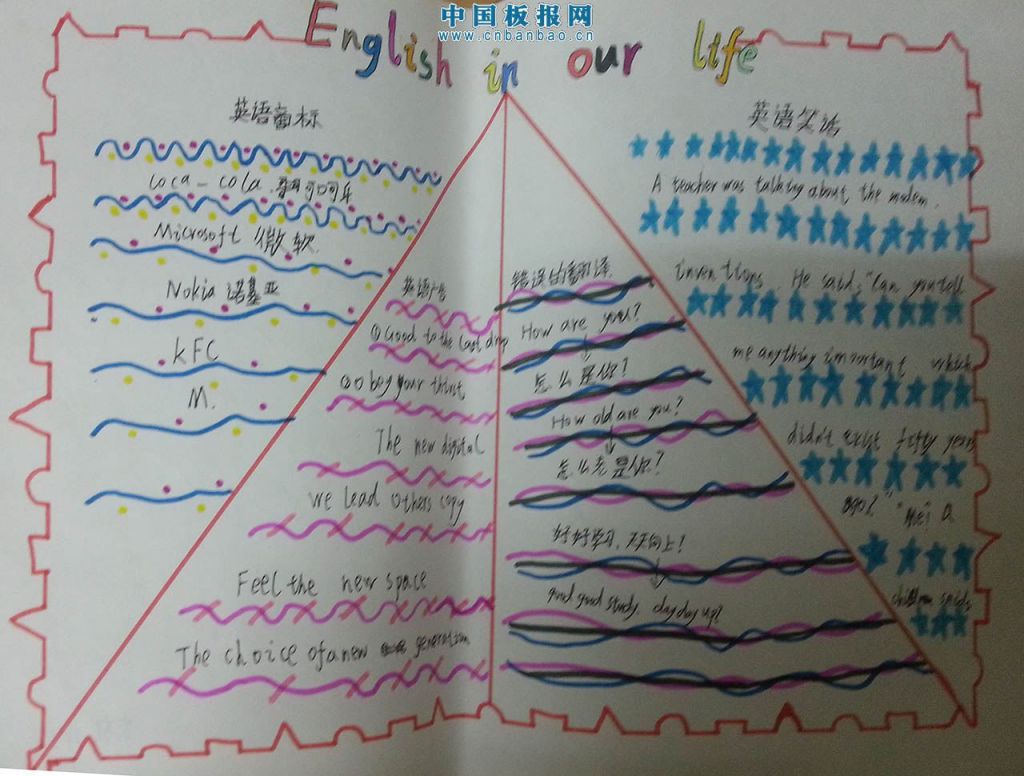 中国板报网
www.cnbanbao.cn
English in our life
英语商标
Coca-Cola 可口可乐
Microsoft 微软
Nokia 诺基亚
KFC
M.
英语广告
①Good to the last drop
②Obey your thirst
The new digital
We lead Others copy
Feel the new space
The choice of a new generation
错误的翻译
How are you?
怎么是你?
How old are you?
怎么老是你?
好好学习,天天向上!
good good study, day day up!
英语笑话
A teacher was talking about the modern.
inventions. He said: "Can you tell
me anything important which
didn't exist fifty years
ago?" "Me!" a